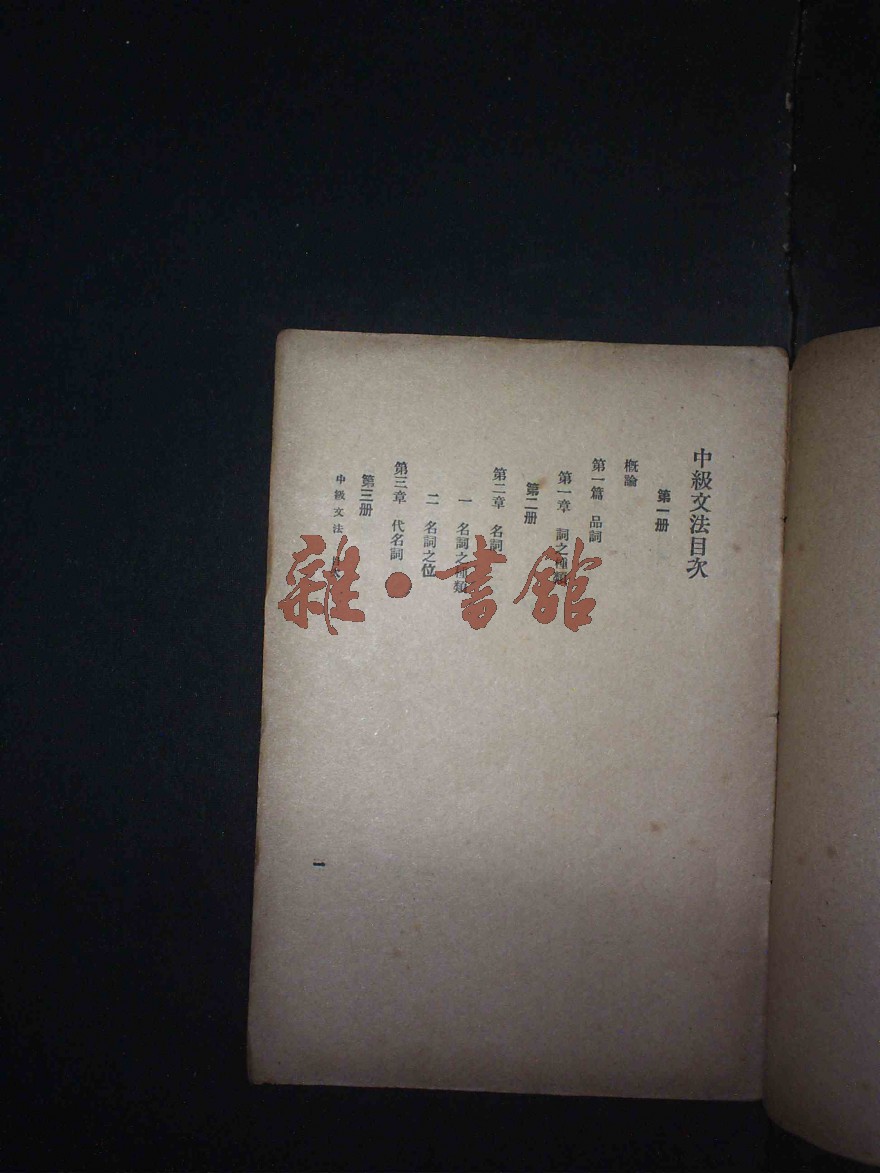 中級文法目次
第一册
概論
第一篇 品詞
第一章 詞之種類
第二册
第二章 名詞
一 名詞之種類
二 名詞之位
第三章 代名詞
第三册
中級文法 目次
一
雜·書館